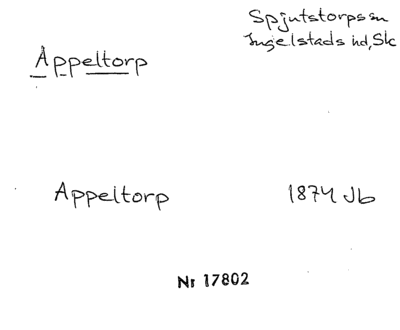 Spjutstorps sn
Ingelstads hd, Sk
Appeltorp
Appeltorp 1874 Jb
Nr 17802